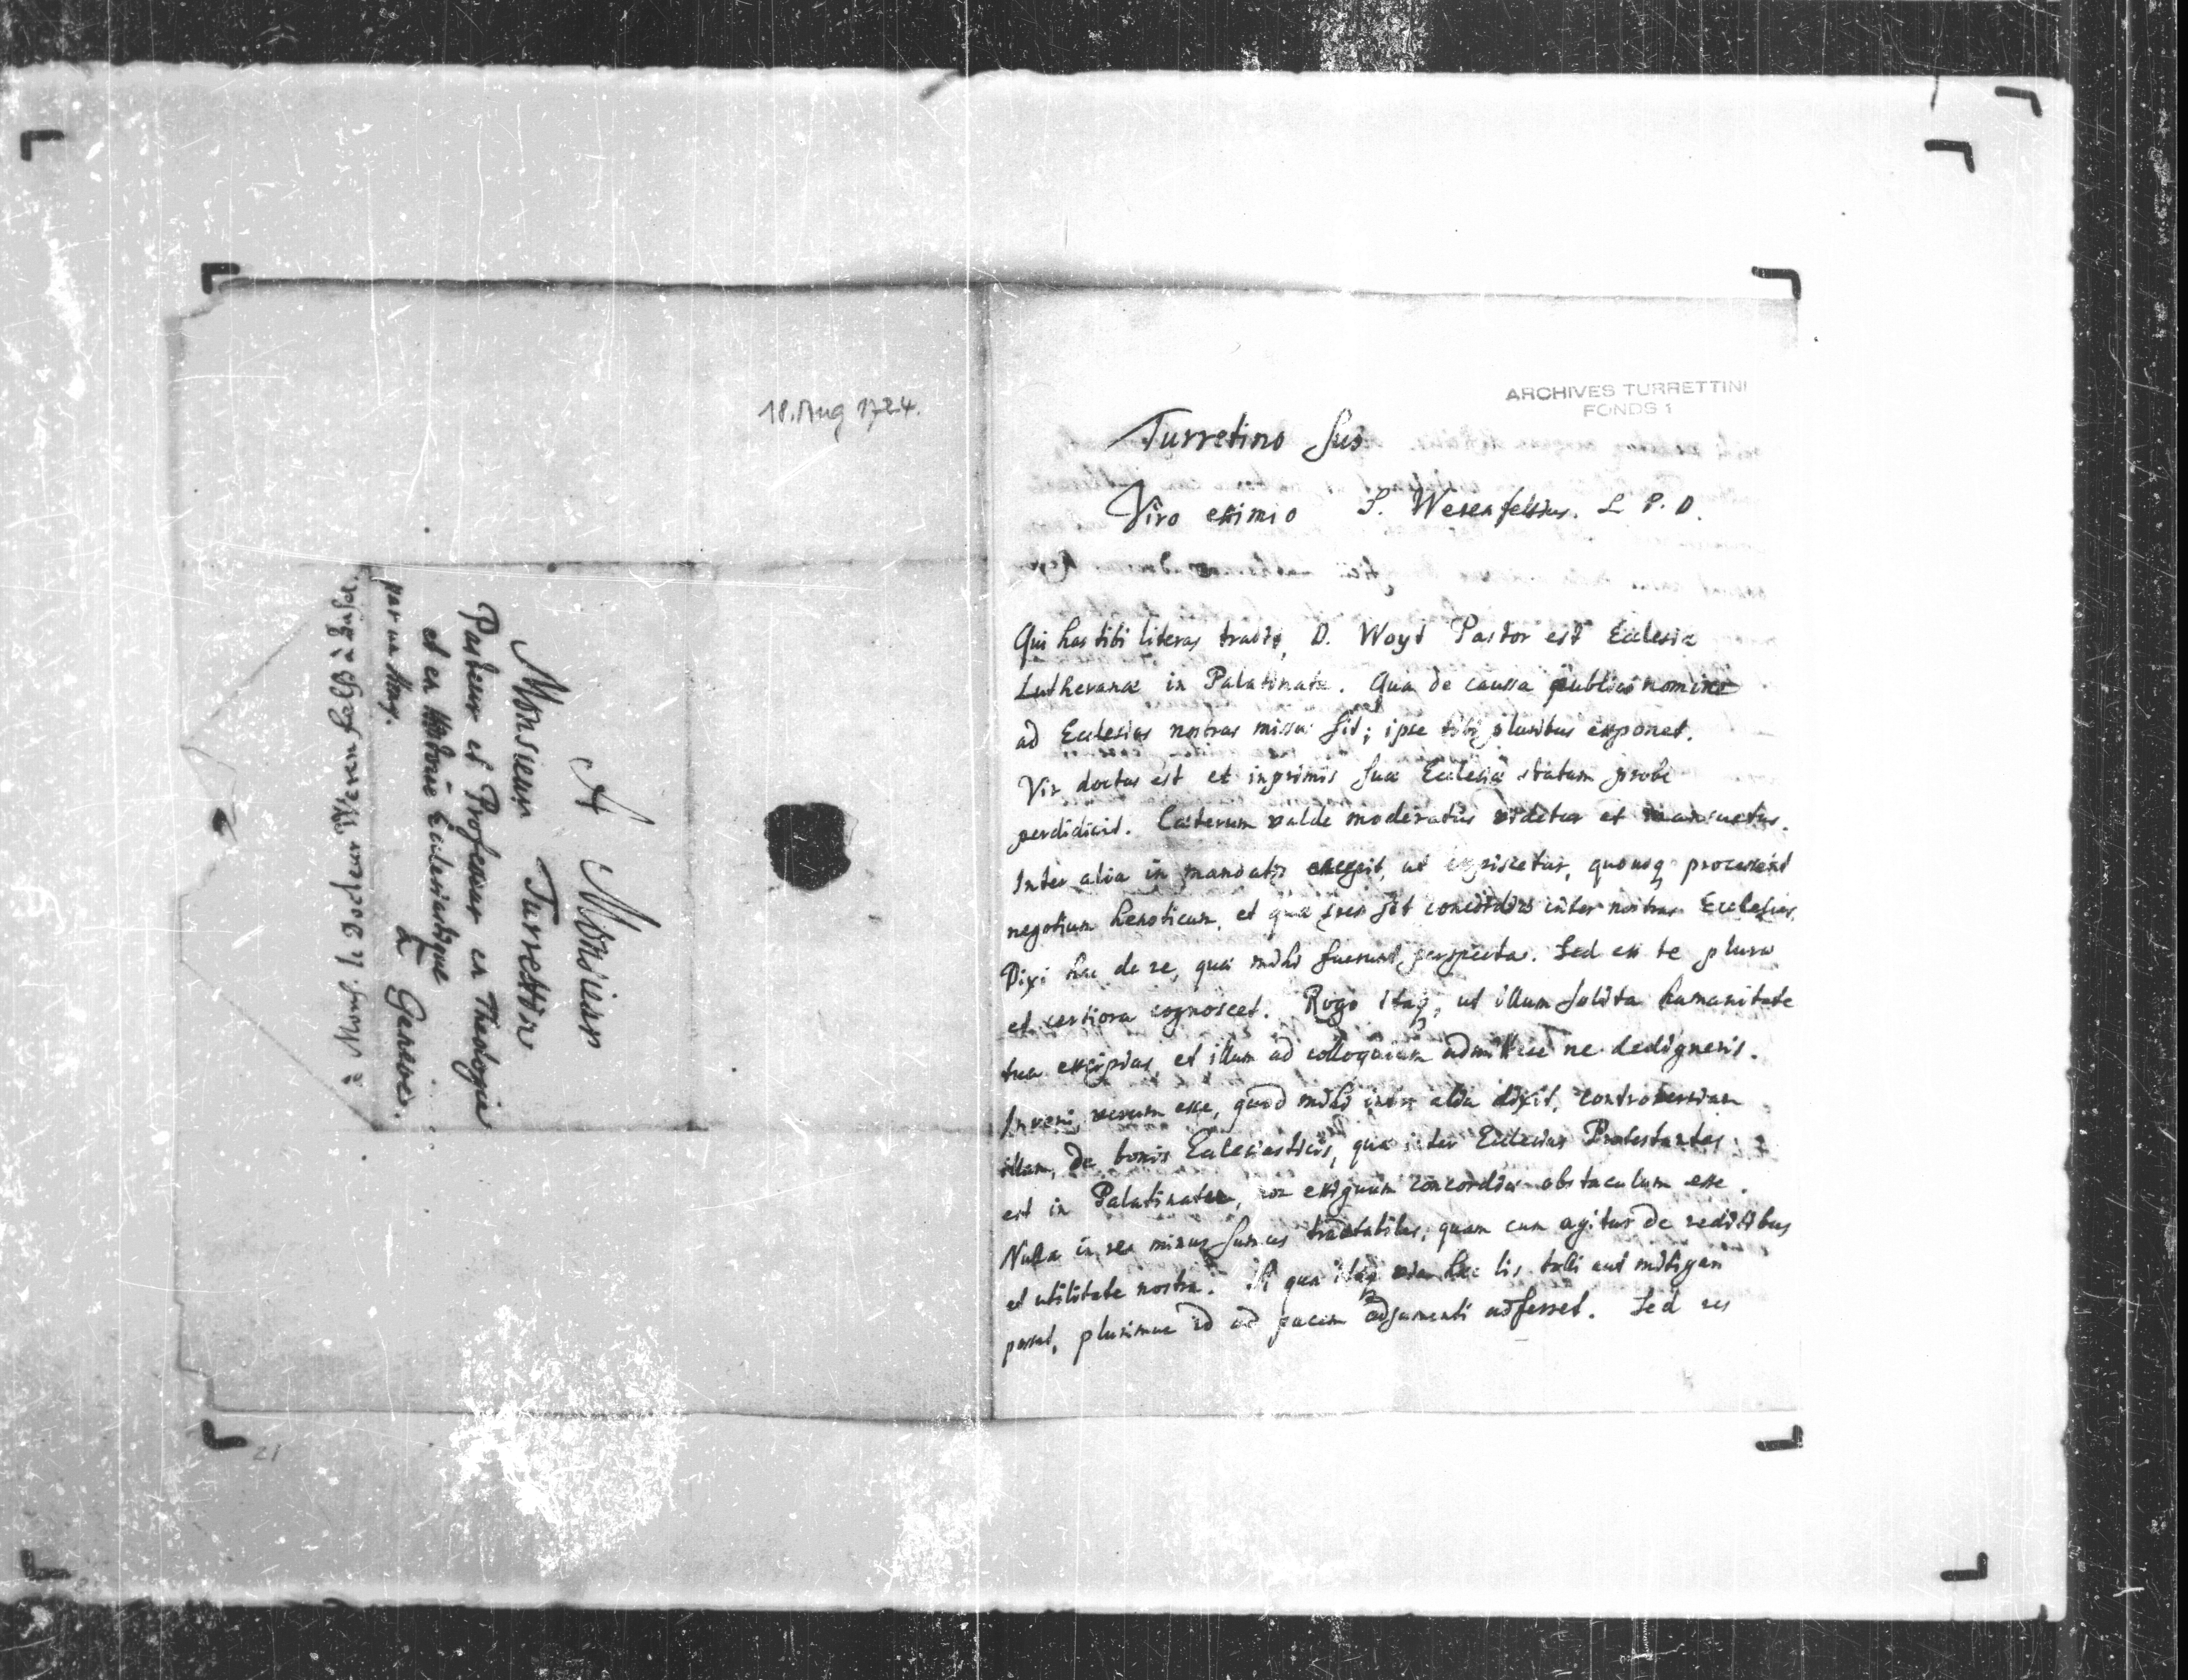 18. Aug 1724.
A Monsieur
Monsieur Turrettin
Pasteur et Professeur en Theologie
et en Histoire Ecclesiastique
à Geneve.
par un Amy.
à Mons. le Docteur Werenfelss à Basel.
21
ARCHIVES TURRETTINI
FONDS 1
Turretino suo
Viro eximio S. Werenfelsius. L P. D.
Qui has tibi literas tradit, D. Woyt Pastor est Ecclesiæ
Lutheranæ in Palatinatu. Qua de caussa publico nomine
ad Ecclesias nostras missus sit; ipse tibi pluribus exponet.
Vir doctus est et inprimis suæ Ecclesiæ statum probe
perdidicit. Cæterum valde moderatus videtur et mansuetus.
Inter alia in mandatis accepit, ut expiscetur, quousq processerit
negotium henoticum, et quæ spes sit concordiæ inter nostras Ecclesias.
Dixi hac de re, quæ mihi fuerunt perspecta. Sed ex te plura
et certiora cognoscet. Rogo itaq, ut illum solita humanitate
tua excipias, et illum ad colloquium admittere ne dedigneris.
Inveni verum esse, quod mihi inter alia dixit, controversiam
illam, de bonis Ecclesiasticis, quæ inter Ecclesias Protestantes
est in Palatinatu, non exiguum concordiæ obstaculum esse.
Nulla in re minus sumus tractabiles, quam cum agitur de reditibus
et utilitate nostra. Si qua itaq via hæc lis tolli aut mitigari
posset, plurimum id ad pacem adjumenti adferret. Sed res